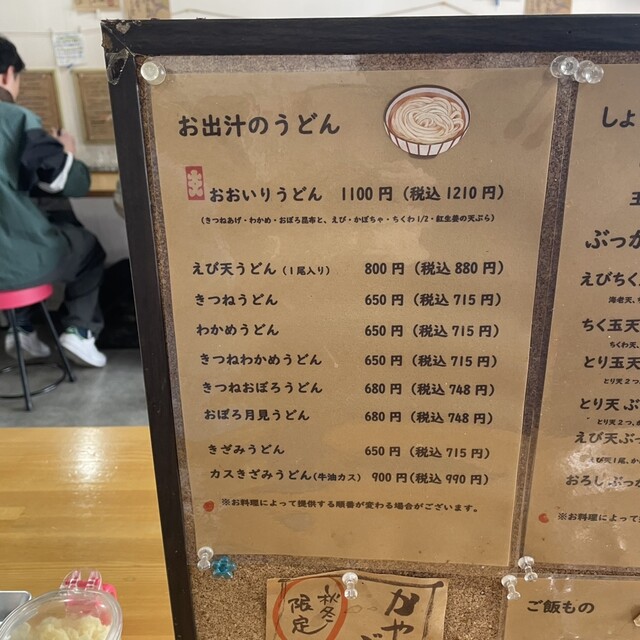 お出汁のうどん
おおいりうどん 1100円(税込1210円)
(きつねあげ・わかめ・おぼろ昆布と、えび・かぼちゃ・ちくわ1/2・紅生姜の天ぷら)
えび天うどん(1尾入り) 800円(税込880円)
きつねうどん 650円(税込715円)
わかめうどん 650円(税込715円)
きつねわかめうどん 650円(税込715円)
きつねおぼろうどん 680円(税込748円)
おぼろ月見うどん 680円(税込748円)
きざみうどん 650円(税込715円)
カスきざみうどん(牛油カス) 900円(税込990円)
※お料理によって提供する順番が変わる場合がございます。
しょ
玉
ぶっか
えびちく
海老天、
ちく玉天
ちくわ天、
とり玉天
とり天2つ
とり天ぶ
とり天2つ、か
えび天ぶっ
えび天1尾、か
おろしぶっか
※お料理によって
秋冬
限定
かや
ご
ご飯もの